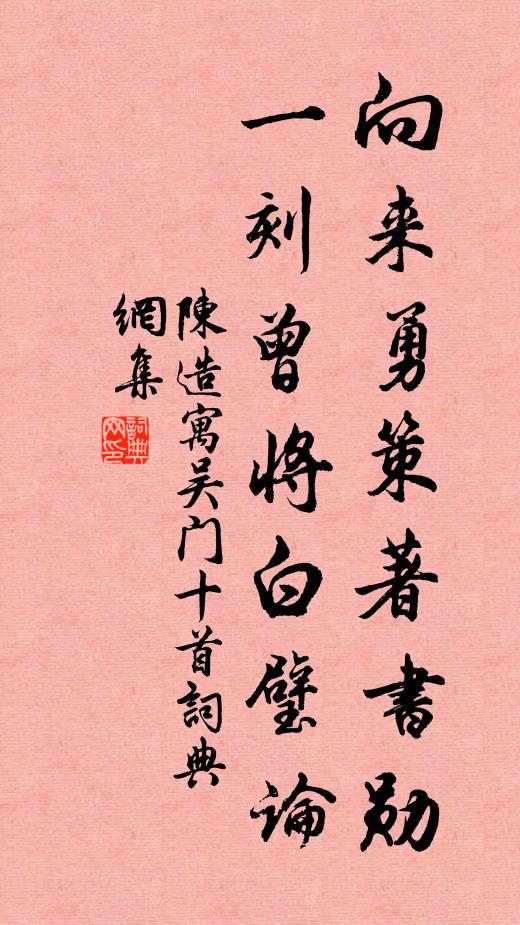 向来勇策著書勋
一刻曾將白璧論
陳造寓吴门十首詞典
網集
詞典網印